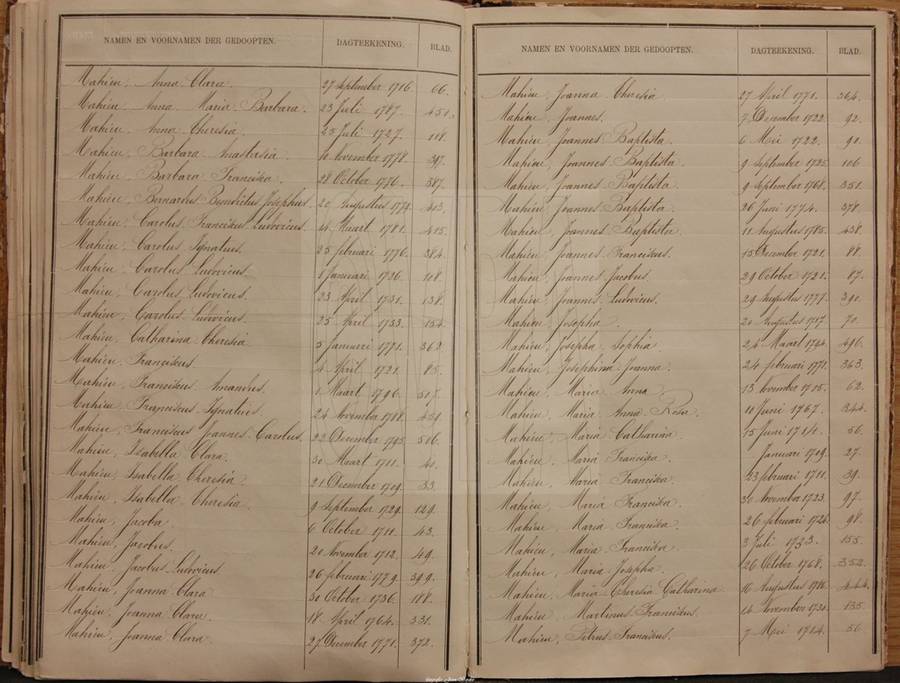 NAMEN EN VOORNAMEN DER GEDOOPTEN. DAGTEEKENING. BLAD.
Mahieu, Anna Clara. 27 September 1716. 66.
Mahieu, Anna Maria Barbara. 23 Juli 1787. 451.
Mahieu, Anna Theresia. 25 Juli 1727. 118.
Mahieu, Barbara Anastasia. November 1778.
Mahieu, Barbara Francisca. 28 October 1776. 387.
Mahieu, Bernardus Benedictus Josephus. 20 Augustus 1778. 403.
Mahieu, Carolus Franciscus Ludovicus. Maart 1781. 415.
Mahieu, Carolus Ignatius. 25 februari 1776. 384.
Mahieu, Carolus Ludovicus. 1 Januari 1726. 108.
Mahieu, Carolus Ludovicus. 23 April 1731. 138.
Mahieu, Carolus Ludovicus. 25 April 1733. 154.
Mahieu, Catharina Theresia. 5 Januari 1771. 362.
Mahieu, Franciscus. 4 April 1721. 85.
Mahieu, Franciscus Amandus. 1 Maart 1796. 517.
Mahieu, Franciscus Ignatius. 24 November 1788.
Mahieu, Franciscus Joannes Carolus. 22 December 1793. 506.
Mahieu, Isabella Clara. 30 Maart 1711.
Mahieu, Isabella Theresia. 21 December 1709. 33.
Mahieu, Isabella Theresia. 9 September 1729. 129.
Mahieu, Jacoba. 6 October 1711. 43.
Mahieu, Jacobus. 21 November 1712. 49.
Mahieu, Jacobus Ludovicus. 26 februari 1779. 399.
Mahieu, Joanna Clara. 30 October 1736. 188.
Mahieu, Joanna Clara. 18 April 1764. 331.
Mahieu, Joanna Clara. 27 December 1771. 372.
NAMEN EN VOORNAMEN DER GEDOOPTEN. DAGTEEKENING. BLAD.
Mahieu, Joanna Theresia. 27 April 1771. 364.
Mahieu, Joannes. 7 December 1722. 92.
Mahieu, Joannes Baptista. 6 Mei 1722. 90.
Mahieu, Joannes Baptista. 9 September 1725. 106
Mahieu, Joannes Baptista. 9 September 1768. 351.
Mahieu, Joannes Baptista. 26 Juni 1774. 378.
Mahieu, Joannes Baptista. 11 Augustus 1785. 438.
Mahieu, Joannes Franciscus. 15 December 1721. 88.
Mahieu, Joannes Jacobus. 29 October 1721. 87.
Mahieu, Joannes Ludovicus. 29 Augustus 1777. 390.
Mahieu, Josepha. 20 Augustus 1717. 70.
Mahieu, Josepha Sophia. 24 Maart
Mahieu, Josephina Joanna. 24 februari 1771. 363.
Mahieu, Maria Anna. 13 November 1715. 62.
Mahieu, Maria Anna Rosa. 10 Juni 1767. 344.
Mahieu, Maria Catharina. 15 Juni
Mahieu, Maria Francisca. Januari 1709. 27.
Mahieu, Maria Francisca. 23 februari 1711. 39.
Mahieu, Maria Francisca. 30 November 1723. 97.
Mahieu, Maria Francisca. 26 februari 98.
Mahieu, Maria Francisca. 3 Juli 1733. 155.
Mahieu, Maria Josepha. 26 October 1768. 352.
Mahieu, Maria Theresia Catharina. 16 Augustus 1786. 444.
Mahieu, Martinus Franciscus. 14 November 1730. 135.
Mahieu, Petrus Franciscus. 7 Mei 1714. 56